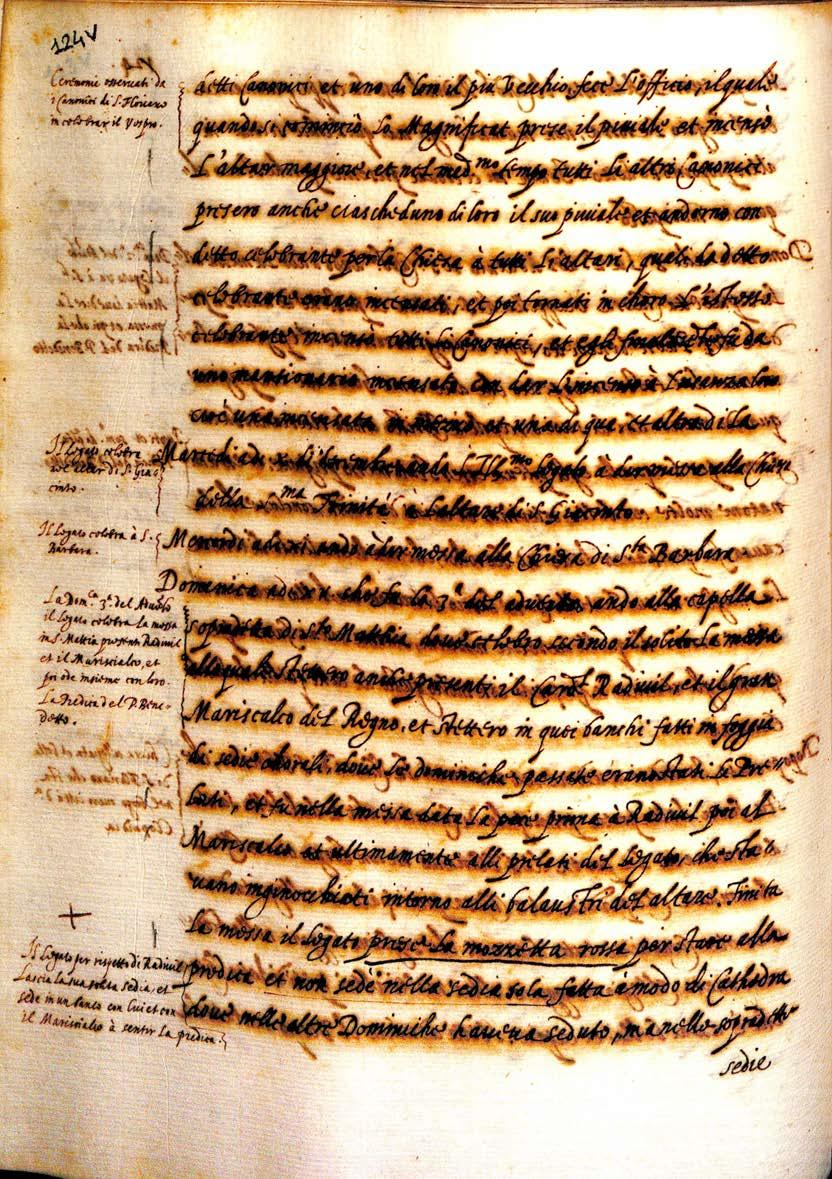 124v
Ceremonie osservati da
i Canonici di S. Floriano
in celebrar il Vespro.
detti Canonici et uno di loro il piu Vecchio fece L'officio, il quale
quando si cominciò Lo Magnificat prese il piviale et incensò
L'altar maggiore, et nel med.mo tempo tutti Li altri Canonici
presero anche ciascheduno di loro il suo piviale et andorno con
detto celebrante per la Chiesa à tutti Li altari, quali da detto
celebrante erano incensati, et poi tornati in choro L'istesso
celebrante incensò tutti Li Canonici, et egli fu da
uno mansionario incensato con dar L'incenso à L'usanza loro
cioè una incensata in mezzo et una di qua, et altra di La
Il Legato celebra
di S. Giac
cinto.
Martedi adi x di decembre andò L'Ill.mo Legato à dir messa alla Chiesa
della S.ma Trinità à L'altare di S. Giacinto
Il Legato celebra à S.
Barbara.
Mercordi adi xi andò à dir messa alla Chiesa di S.ta Barbara
La Dom.ca 3.a del Advento
il Legato celebra la messa
in S. Mattia presenti Radivil
et il Mariscalco, et
poi ode insieme con loro
La Predica del P. Bene-
detto.
Domenica adi che fu la 3.a del advento andò alla capella
sopradetta di S.to Matthia dove celebro secondo il solito La messa
alla quale stettero anche presenti il Card.l Radivil, et il gran
Mariscalco del Regno, et stettero in quei banchi fatti in foggia
di sedie chorali, dove Le dominiche passate erano stati Li Pre-
lati, et fu nella messa data La pace prima à Radivil poi al
Mariscalco et ultimamente alli prelati del Legato, che sta-
vano inginocchiati intorno alli balaustri del altare. Finita
La messa il Legato prese La mozzetta rossa per stare alla
Il Legato per rispetto di Radivil
Lascia la sua solita sedia, et
sede in un banco con Lui et con
il Mariscalco à sentir La predica.
predica et non sedè nella sedia sola fatta à modo di Cathedra
dove nelle altre Dominiche haveva seduto, ma nelle sopradette
sedie